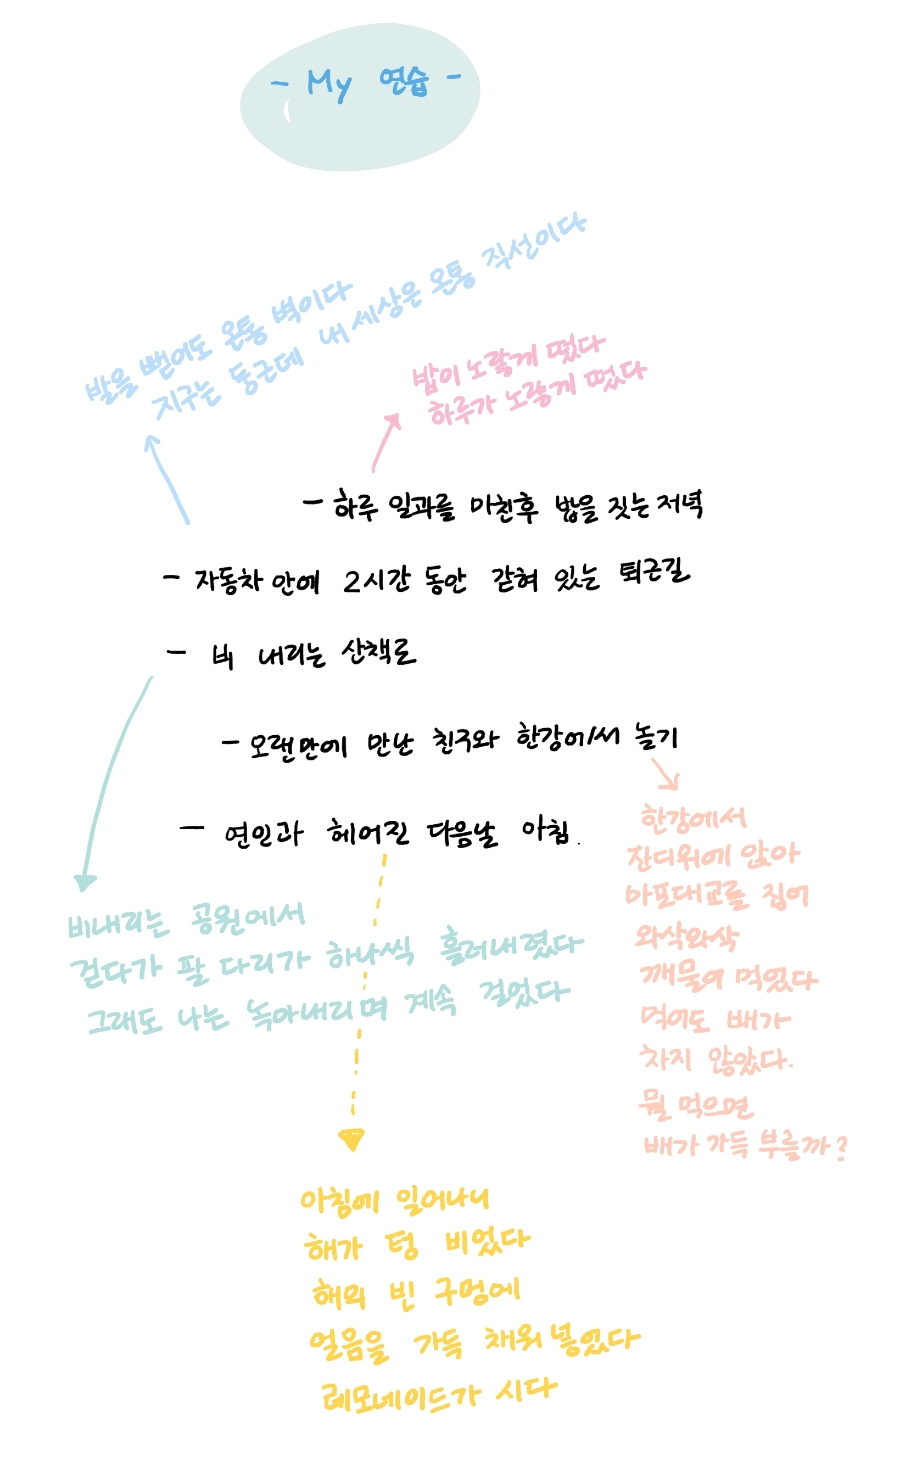 - My 연습 -
발을 뻗어도 온통 벽이다
지구는 둥근데 내 세상은 온통 직선이다
밥이 노랗게 떴다
하루가 노랗게 떴다
- 하루 일과를 마친후 밥을 짓는 저녁
- 자동차 안에 2시간 동안 갇혀 있는 퇴근길
- 비 내리는 산책로
- 오랜만에 만난 친구와 한강에서 놀기
- 연인과 헤어진 다음날 아침.
한강에서
잔디위에 앉아
마포대교를 집어
와삭와삭
깨물어 먹었다
먹어도 배가
차지 않았다.
뭘 먹으면
배가 가득 부를까?
비내리는 공원에서
걷다가 팔 다리가 하나씩 흘러내렸다
그래도 나는 녹아내리며 계속 걸었다
아침에 일어나니
해가 텅 비었다
해의 빈 구멍에
얼음을 가득 채워 넣었다
레모네이드가 시다